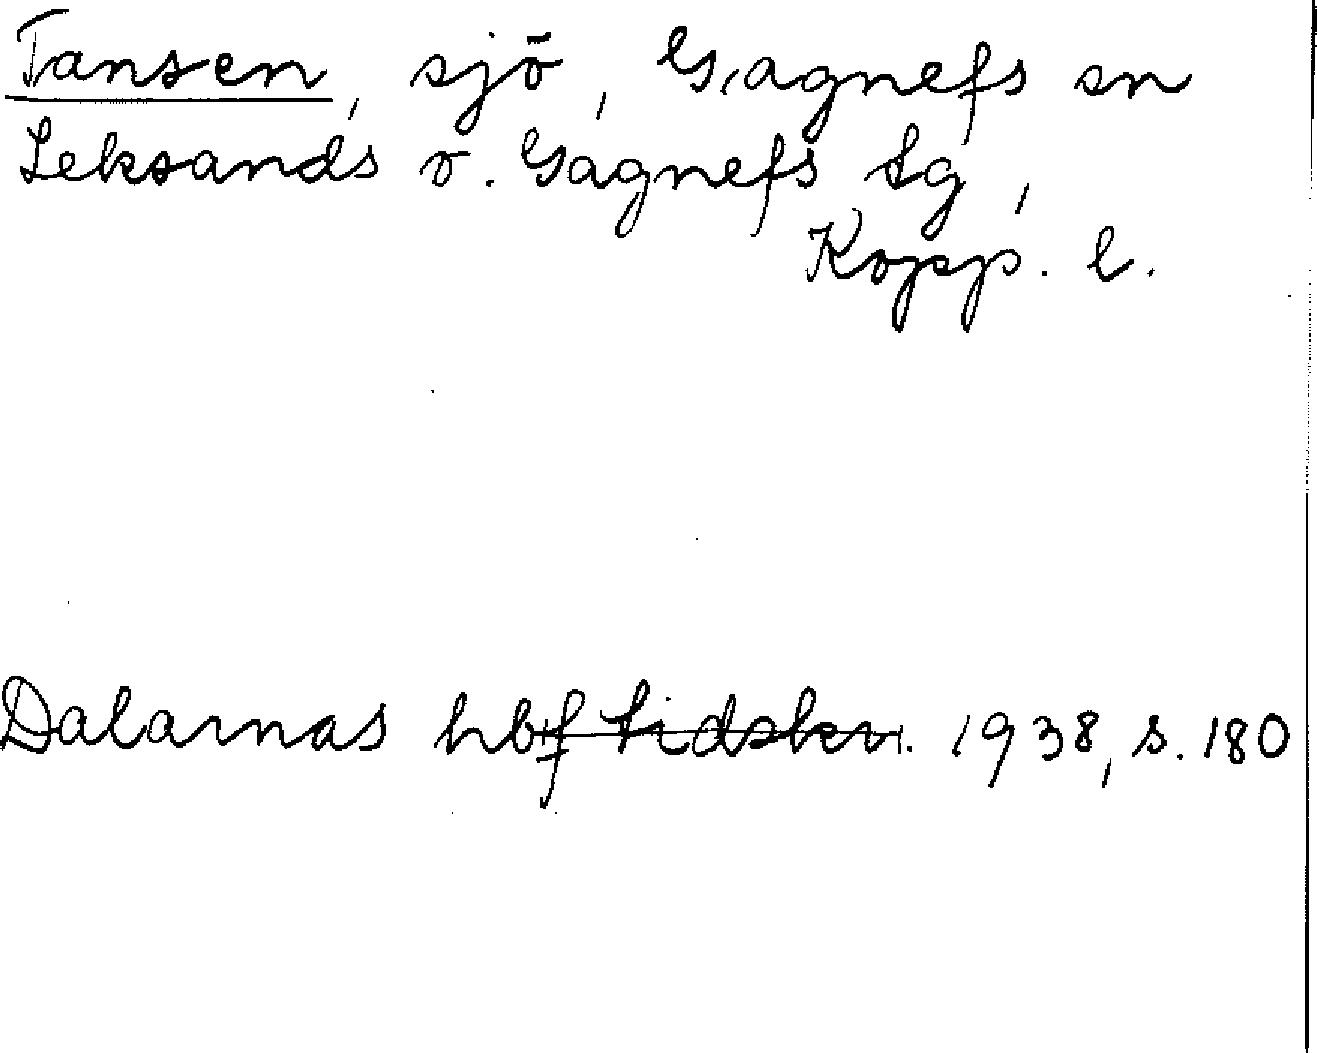 Tansen, sjö, Gagnefs sn
Leksands o. Gagnefs tg,
Kopp. l.
Dalarnas hbf tidskr. 1938, s. 180